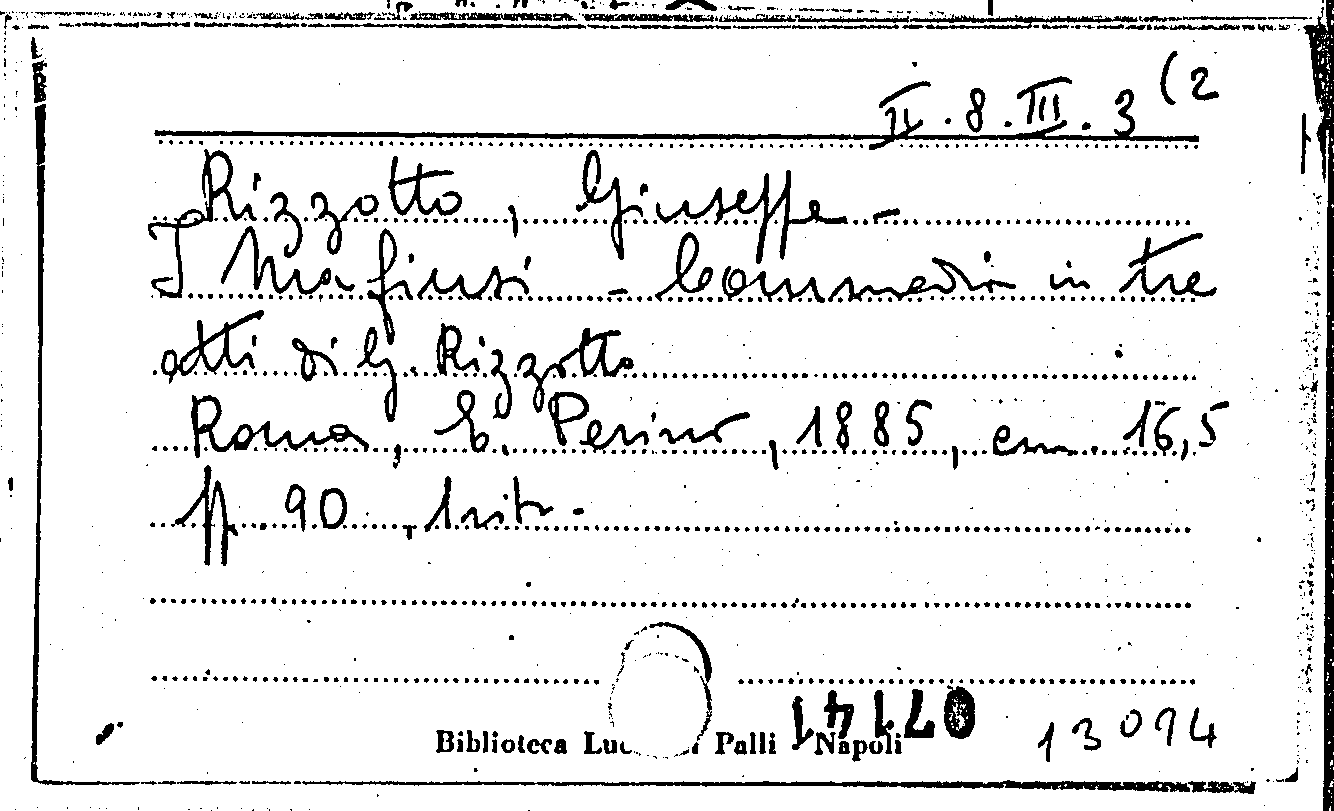 II.8.III.3 (2
Rizzotto, Giuseppe -
I Mafiusi - Commedia in tre
atti di G. Rizzotto
Roma, E. Perino, 1885, cm. 16,5
pp. 90, 1 rit.
Biblioteca Luc Palli Napoli
13094